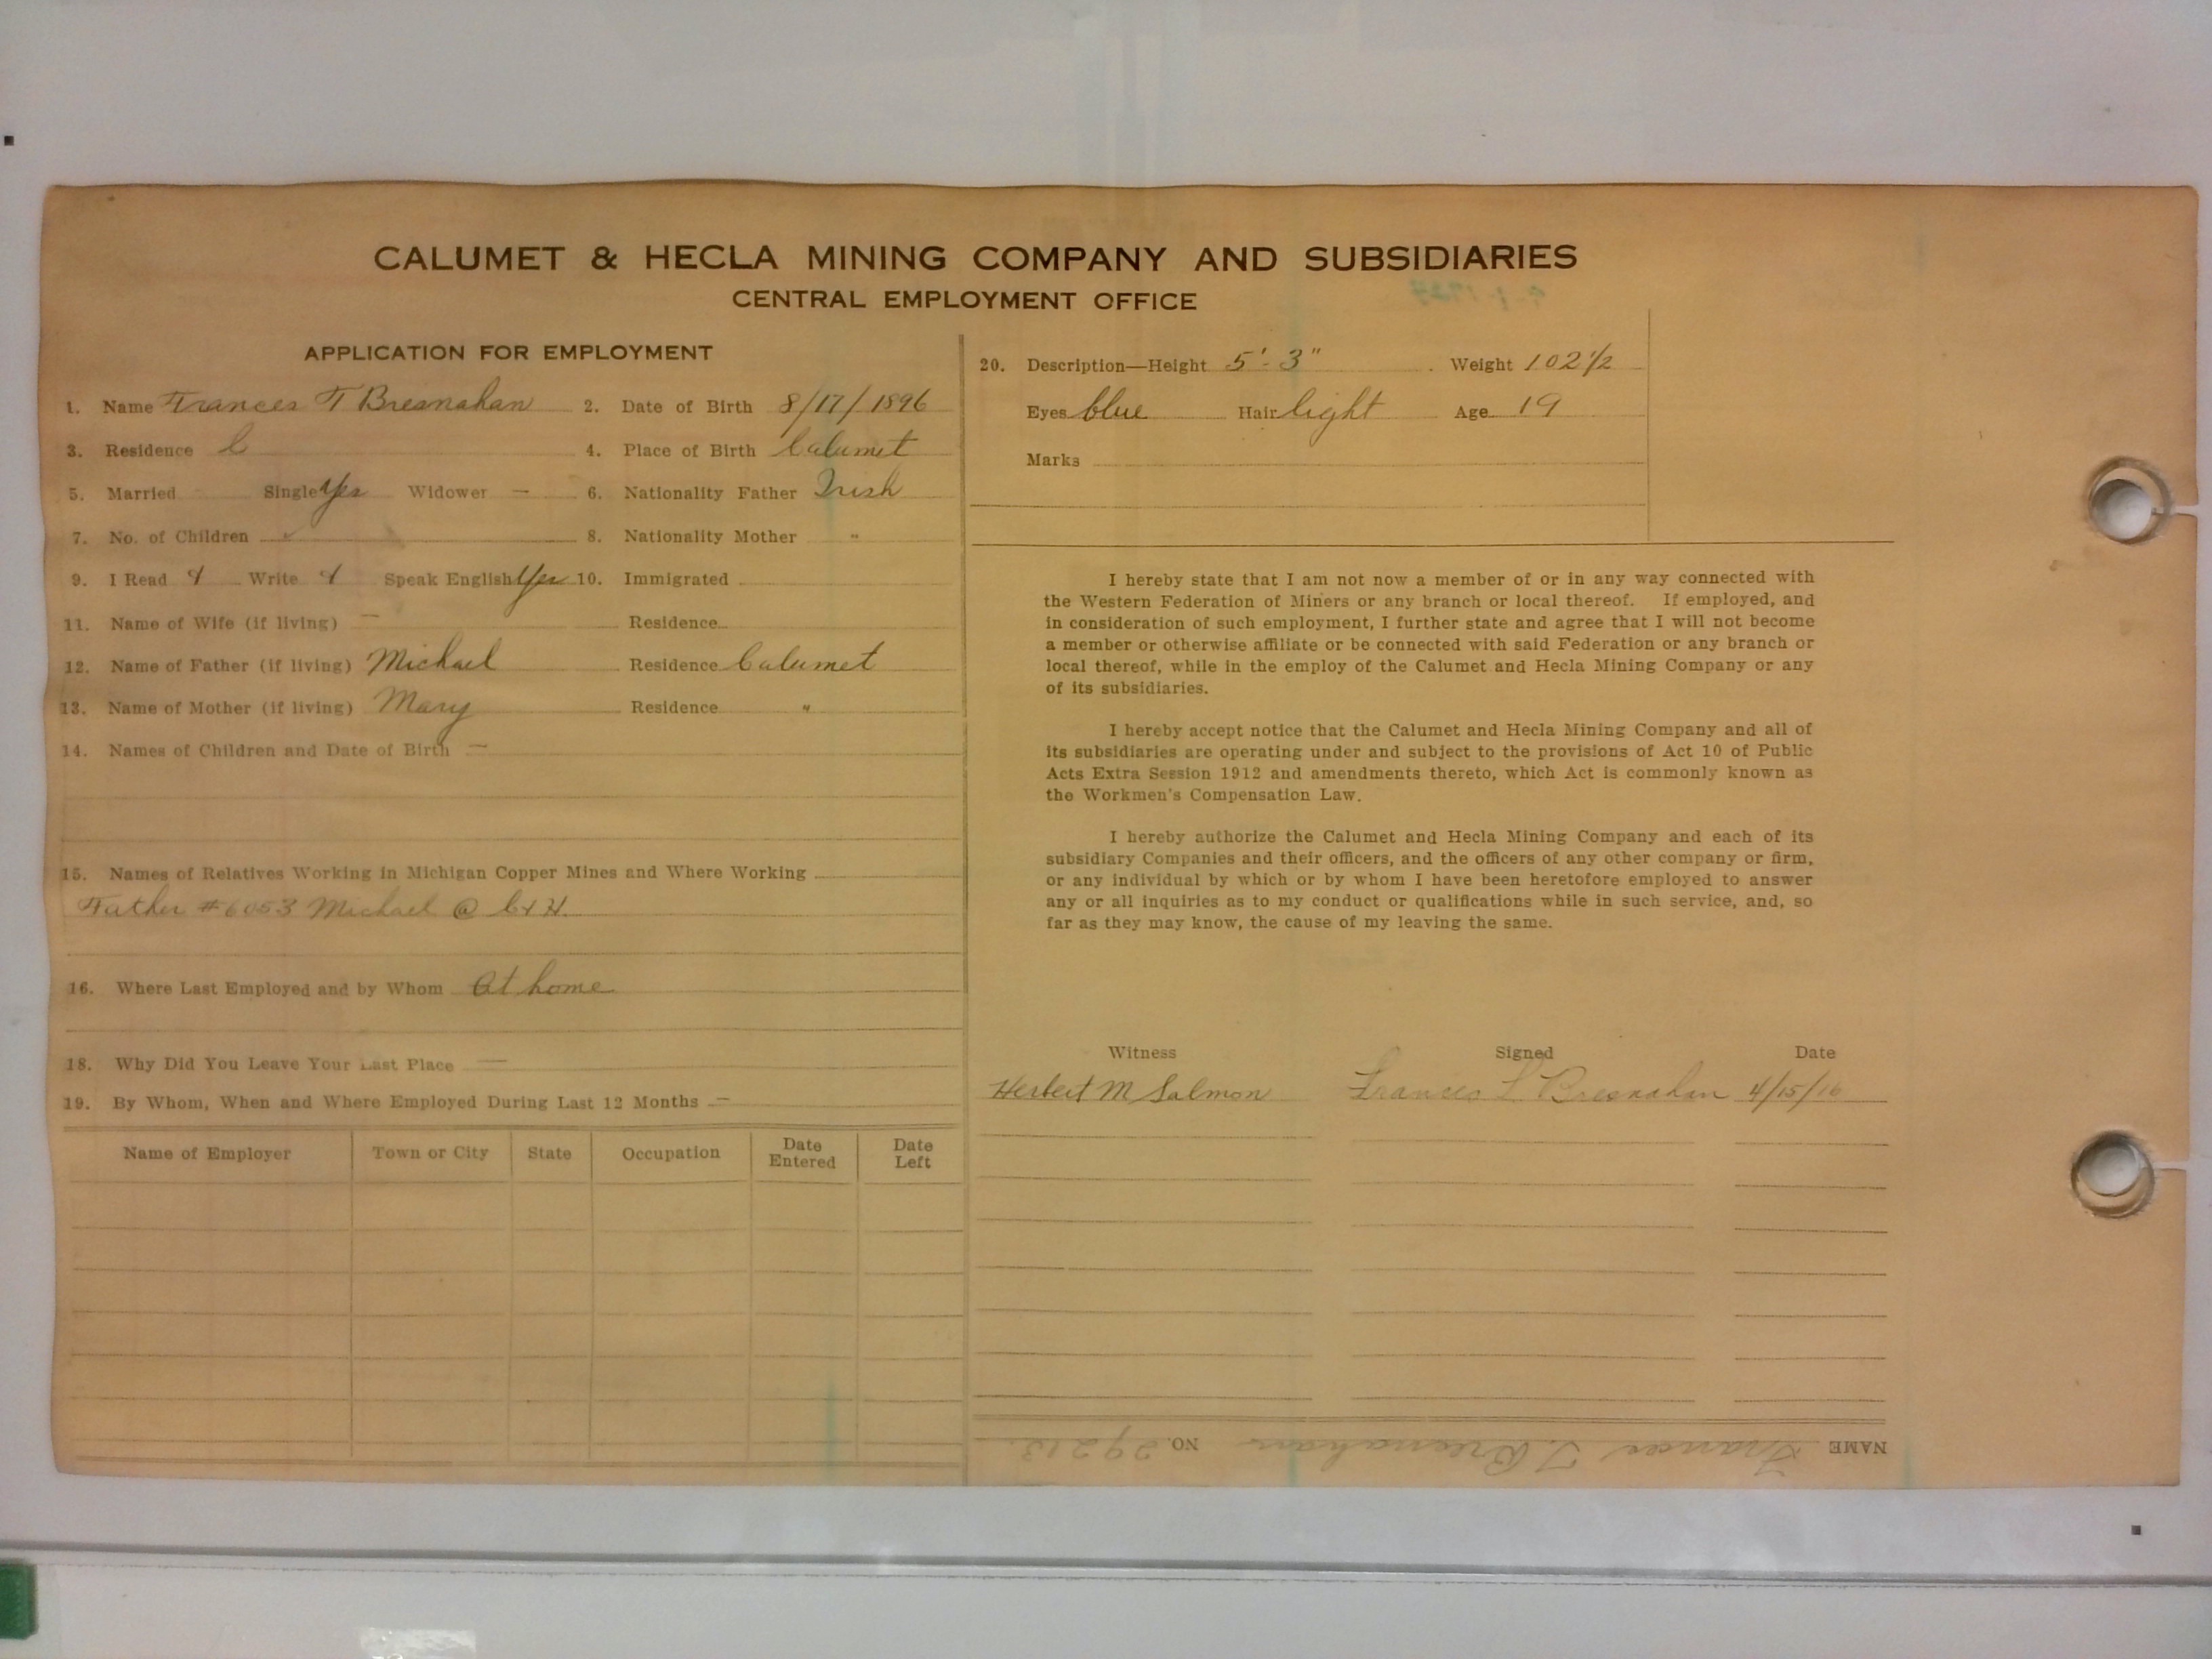 CALUMET & HECLA MINING COMPANY AND SUBSIDIARIES
CENTRAL EMPLOYMENT OFFICE
APPLICATION FOR EMPLOYMENT
1. Name Frances T Bresnahan 2. Date of Birth 8/17/1896
3. Residence C 4. Place of Birth Calumet
5. Married Single Yes Widower — 6. Nationality Father Irish
7. No. of Children 8. Nationality Mother "
9. I Read Write Speak English Yes 10. Immigrated
11. Name of Wife (if living) — Residence
12. Name of Father (if living) Michael Residence Calumet
13. Name of Mother (if living) Mary Residence "
14. Names of Children and Date of Birth —
15. Names of Relatives Working in Michigan Copper Mines and Where Working
Father #6053 Michael @ C & H.
16. Where Last Employed and by Whom At home
18. Why Did You Leave Your Last Place —
19. By Whom, When and Where Employed During Last 12 Months —
Name of Employer Town or City State Occupation Date Entered Date Left
20. Description—Height 5'-3" Weight 102 1/2
Eyes blue Hair light Age 19
Marks
I hereby state that I am not now a member of or in any way connected with
the Western Federation of Miners or any branch or local thereof. If employed, and
in consideration of such employment, I further state and agree that I will not become
a member or otherwise affiliate or be connected with said Federation or any branch or
local thereof, while in the employ of the Calumet and Hecla Mining Company or any
of its subsidiaries.
I hereby accept notice that the Calumet and Hecla Mining Company and all of
its subsidiaries are operating under and subject to the provisions of Act 10 of Public
Acts Extra Session 1912 and amendments thereto, which Act is commonly known as
the Workmen's Compensation Law.
I hereby authorize the Calumet and Hecla Mining Company and each of its
subsidiary Companies and their officers, and the officers of any other company or firm,
or any individual by which or by whom I have been heretofore employed to answer
any or all inquiries as to my conduct or qualifications while in such service, and, so
far as they may know, the cause of my leaving the same.
Witness Signed Date
Herbert M Salmon Frances T Bresnahan 4/15/16
NAME Frances T. Bresnahan NO. 29213